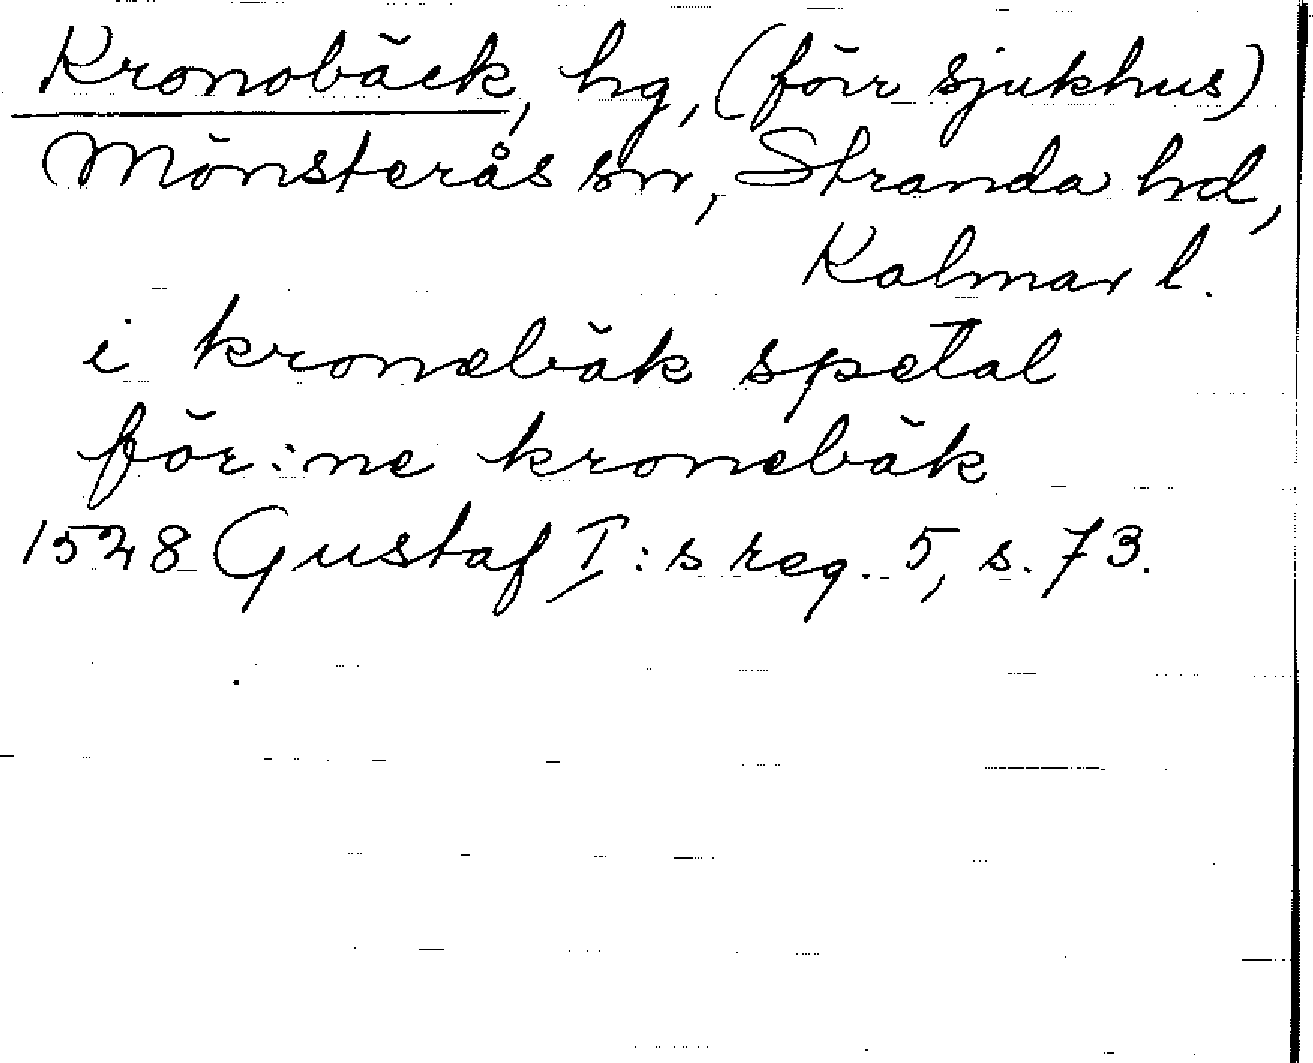 Kronobäck, hg, (förr sjukhus)
Mönsterås sn, Stranda hd,
Kalmar l.
i kronebäk spetal
för:ne kronebäk
1528 Gustaf I:s reg. 5, s. 73.